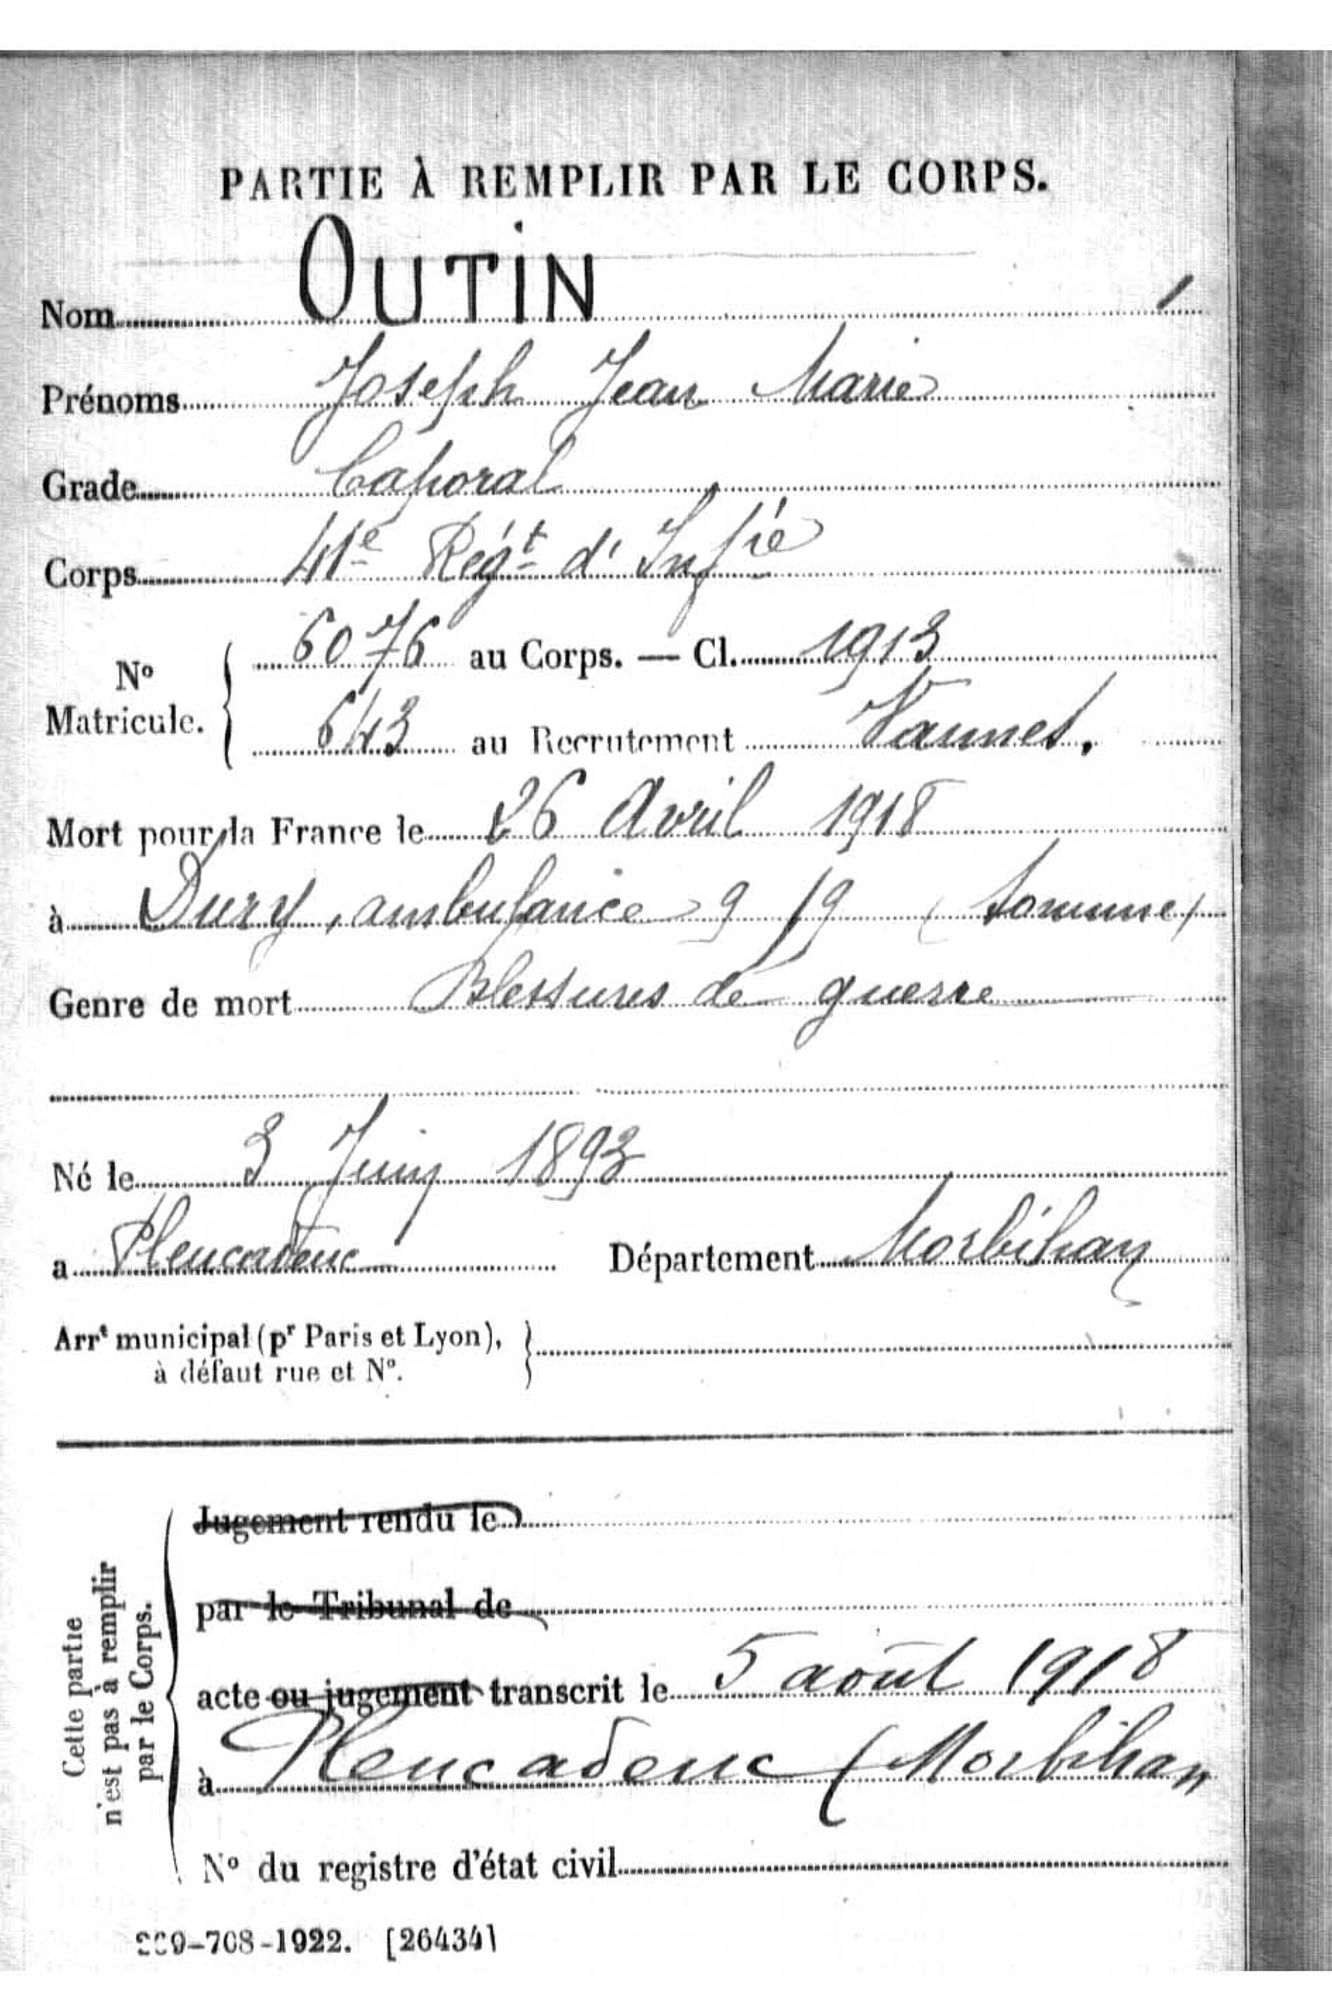 PARTIE À REMPLIR PAR LE CORPS.
Nom OUTIN
Prénoms Joseph Jean Marie
Grade Caporal
Corps 41e Régt d'Infie
No Matricule. 6076 au Corps. — Cl. 1913
643 au Recrutement Vannes.
Mort pour la France le 26 Avril 1918
à Dury, ambulance 9/9 (Somme)
Genre de mort Blessures de guerre
Né le 3 Juin 1893
a Pleucadeuc Département Morbihan
Arrt municipal (pr Paris et Lyon),
à défaut rue et No.
Cette partie
n'est pas à remplir
par le Corps.
Jugement rendu le
par le Tribunal de
acte ou jugement transcrit le 5 août 1918
à Pleucadeuc (Morbihan
No du registre d'état civil
-708-1922. [26434]